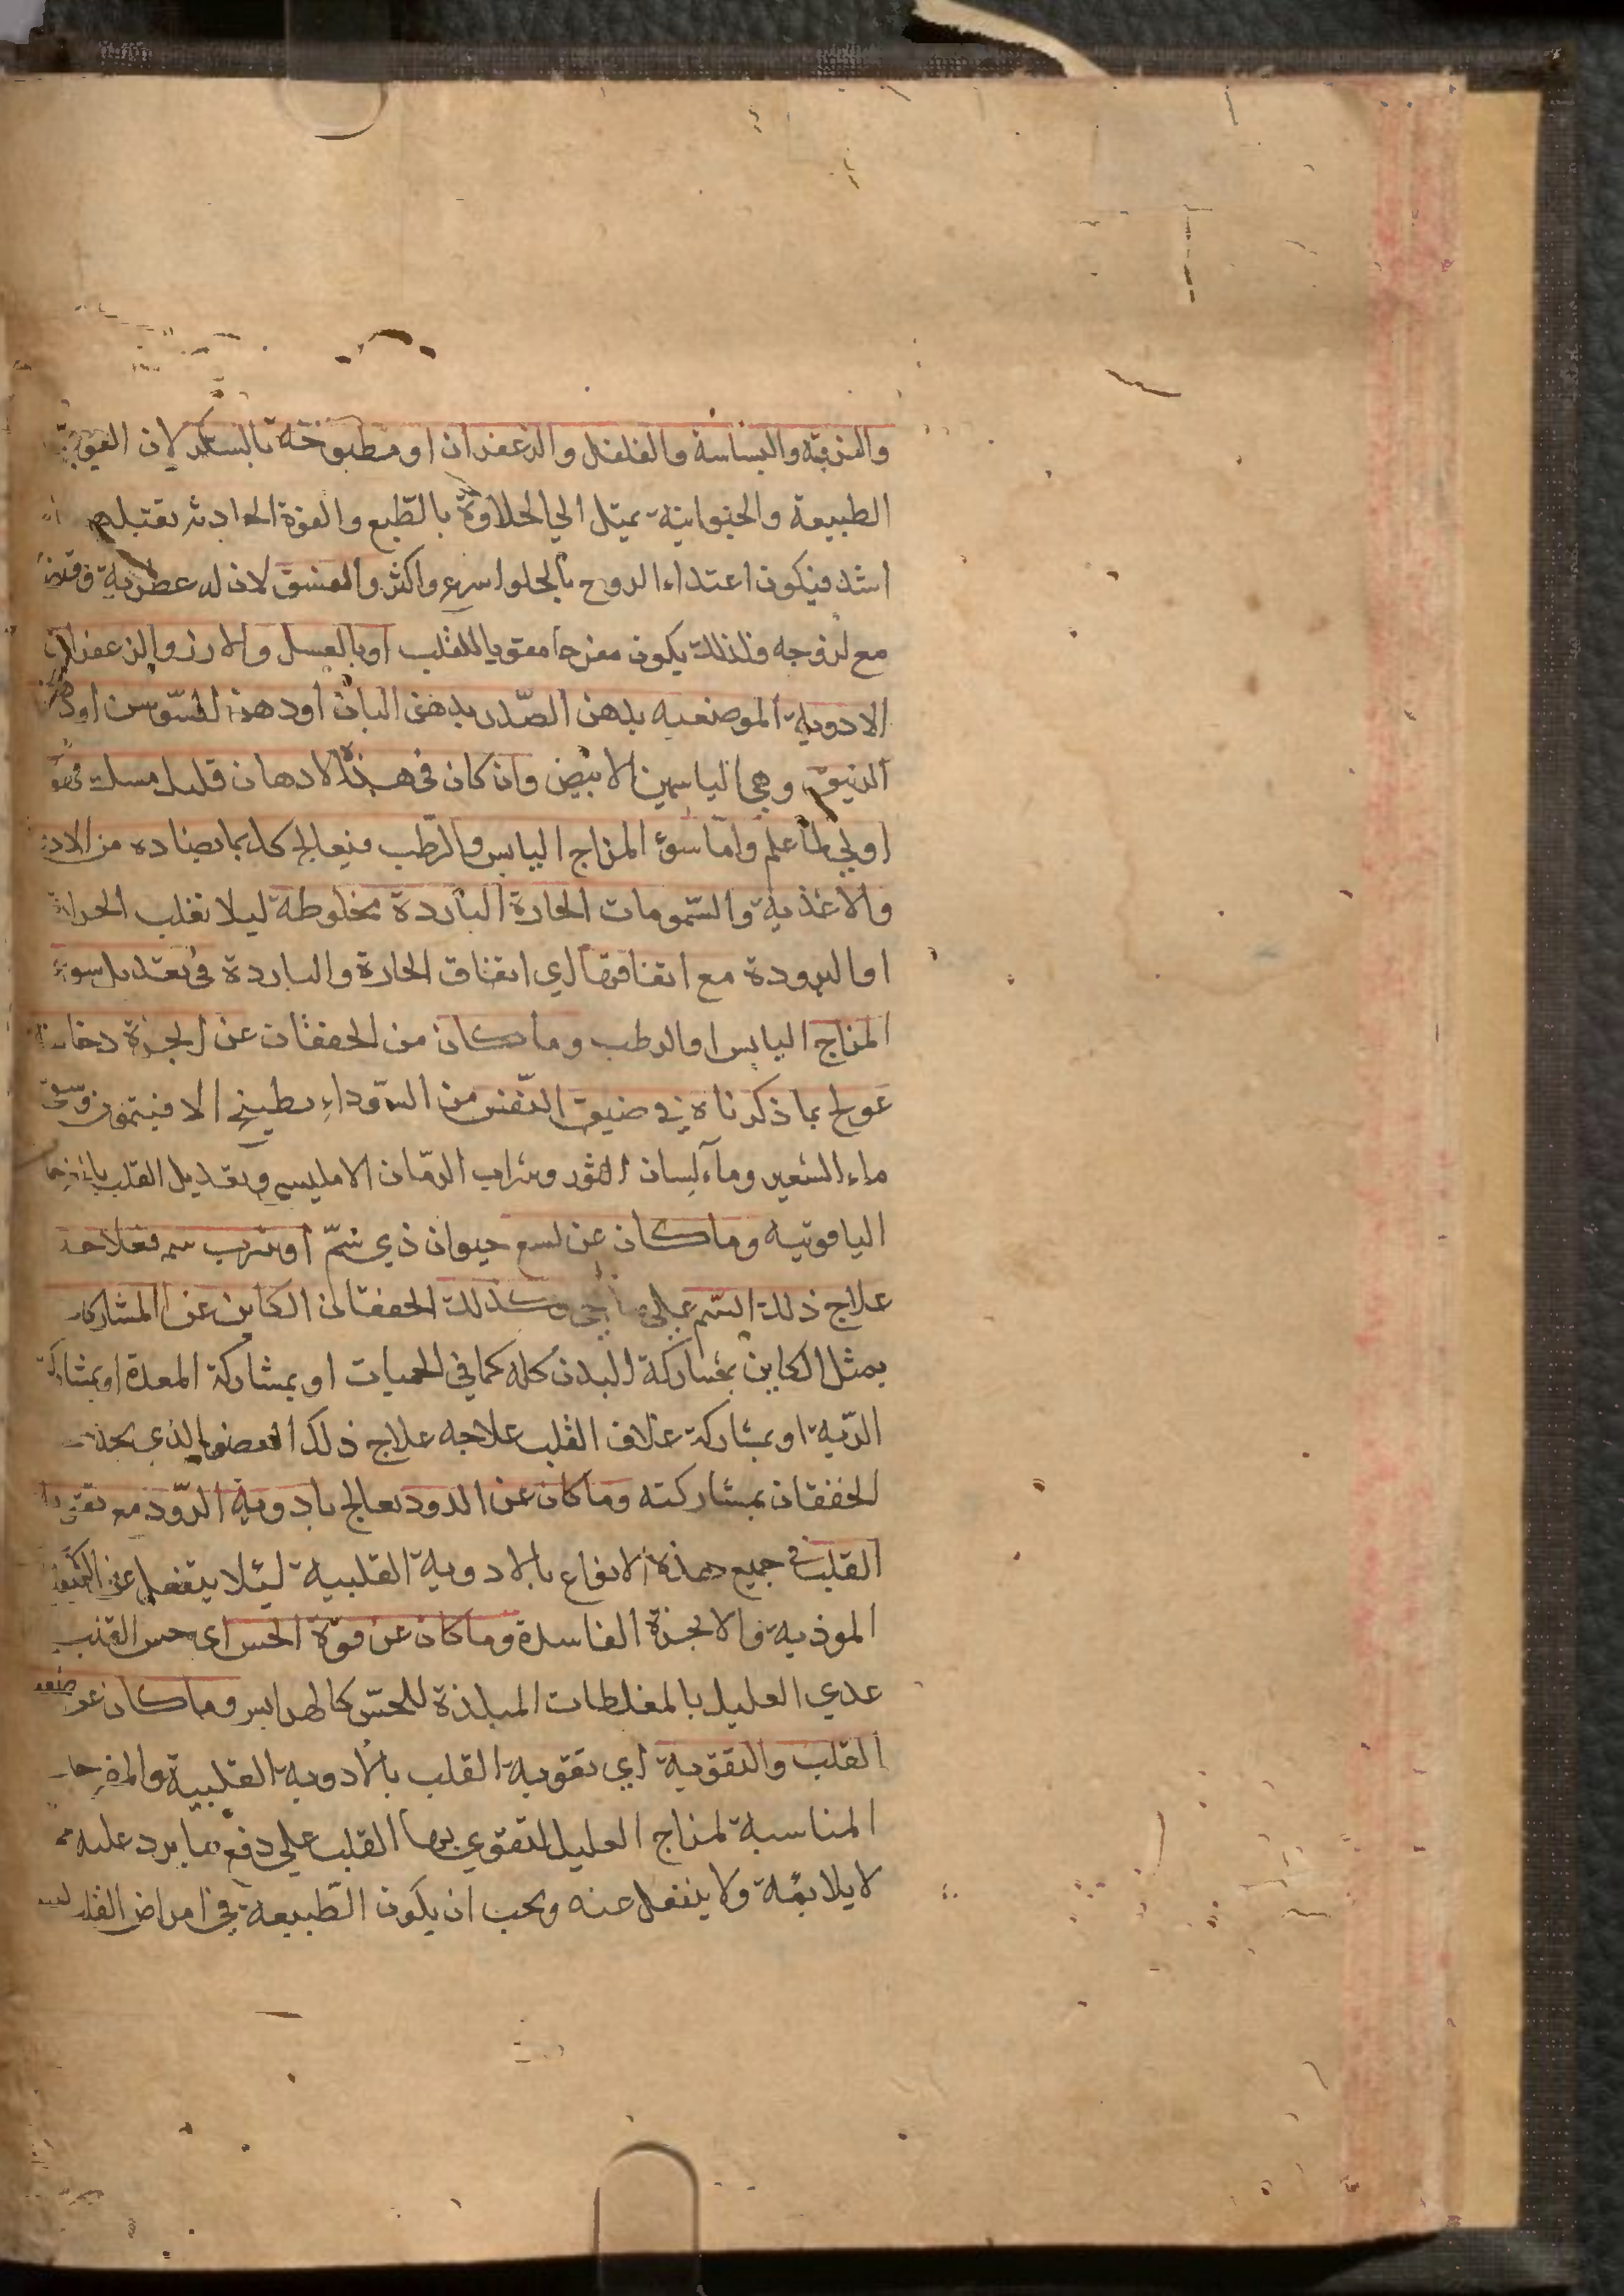 والقرفة والبساسة والفلفل والزعفران او مطبوخة بالسكر لان القوي
الطبيعة والحيوانية تميل الي الحلاوة بالطبع والقوة الحادثة تقبله
اشد فيكون اعتداء الروح بالحلوا سرع واكثر والفستق لان له عطرية وقبض
مع لزوجه فلذلك يكون مفرحا مقويا للقلب او بالعسل والارز والزعفران
الادوية الموضعيه بدهن الصّدر بدهن البان او دهن السّوسن او دهن
الزنبق وهي الياسمين الابيض وان كان في هذه الادهان قليل مسك فهو
اولي لما علم وامّا سوء المزاج اليابس والرّطب فيعالج كل بما يضاده من الادو
والاغذية والشّمومات الحارة الباردة مخلوطة ليلا تغلب الحرارة
او البرودة مع اتفاقها اي اتفاق الحارة والباردة في تعديل سوء
المزاج اليابس او الرطب وما كان من الخفقان عن ابخرة دخانية
عولج بما ذكرناه في ضيق النّفس من السّوداء بطبيخ الافيتمون وسقي
ماء الشعير وماء لسان الثور وشراب الرمّان الامليسي وتعديل القلب
الياقوتيه وما كان عن لسع حيوان ذي سمّ او شرب سم فعلاجه
علاج ذلك السّم علي ما وكذلك الخفقان الكاين عن المشاركات
يمثل الكاين بمشاركة البدن كله كما في الحميات او بمشاركة المعدة او بمشاركة
الرّية او بمشاركة غلاف القلب علاجه علاج ذلك العضو الذي يحدث
الخفقان بمشاركته وما كان عن الدود يعالج بادوية الدّود مع تقوية
القلب في جميع هذه الانواع بالادوية القلبية ليئلا ينفعل عن الكيفية
الموذية والابخرة الفاسدة وما كان عن قوّة الحس اي حس القلب
غدي العليل بالمغلظات المبلدة للحسّ كالهرايس وما كان عن ضعف
القلب والتقوية اي تقوية القلب بالادوية القلبية والمفرحات
المناسبة لمزاج العليل لتقوي بها القلب علي دفع ما يرد عليه مما
لا يلايمة ولا ينفعل عنه ويجب ان يكون الطّبيعة في امراض القلب لينه